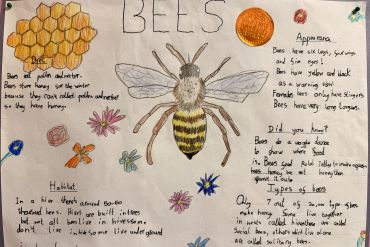 BEES
Diet
Bees eat pollen and nectar.
Bees store honey for the winter
because they can't collect pollen and nectar
so they have honey.
Appearance
Bees have six legs, four wings
and five eyes!
Bees have yellow and black
as a warning sign!
Females bees only have stingers
Bees have very long tongues.
Did you know?
Bees do a waggle dance
to show where food
is. Bees feed Royal Jelly to make a queen.
bees honey
Habitat
In a hive there's around 20-60
thousand bees. Hives are built in trees
but not all bees live in hives some
don't live in hives some live underground
Types of bees
Only 7 out of 20,000 type of bees
make honey. Some live together
in nests called hives these are called
Social bees, others which live alone
are called solitary bees.